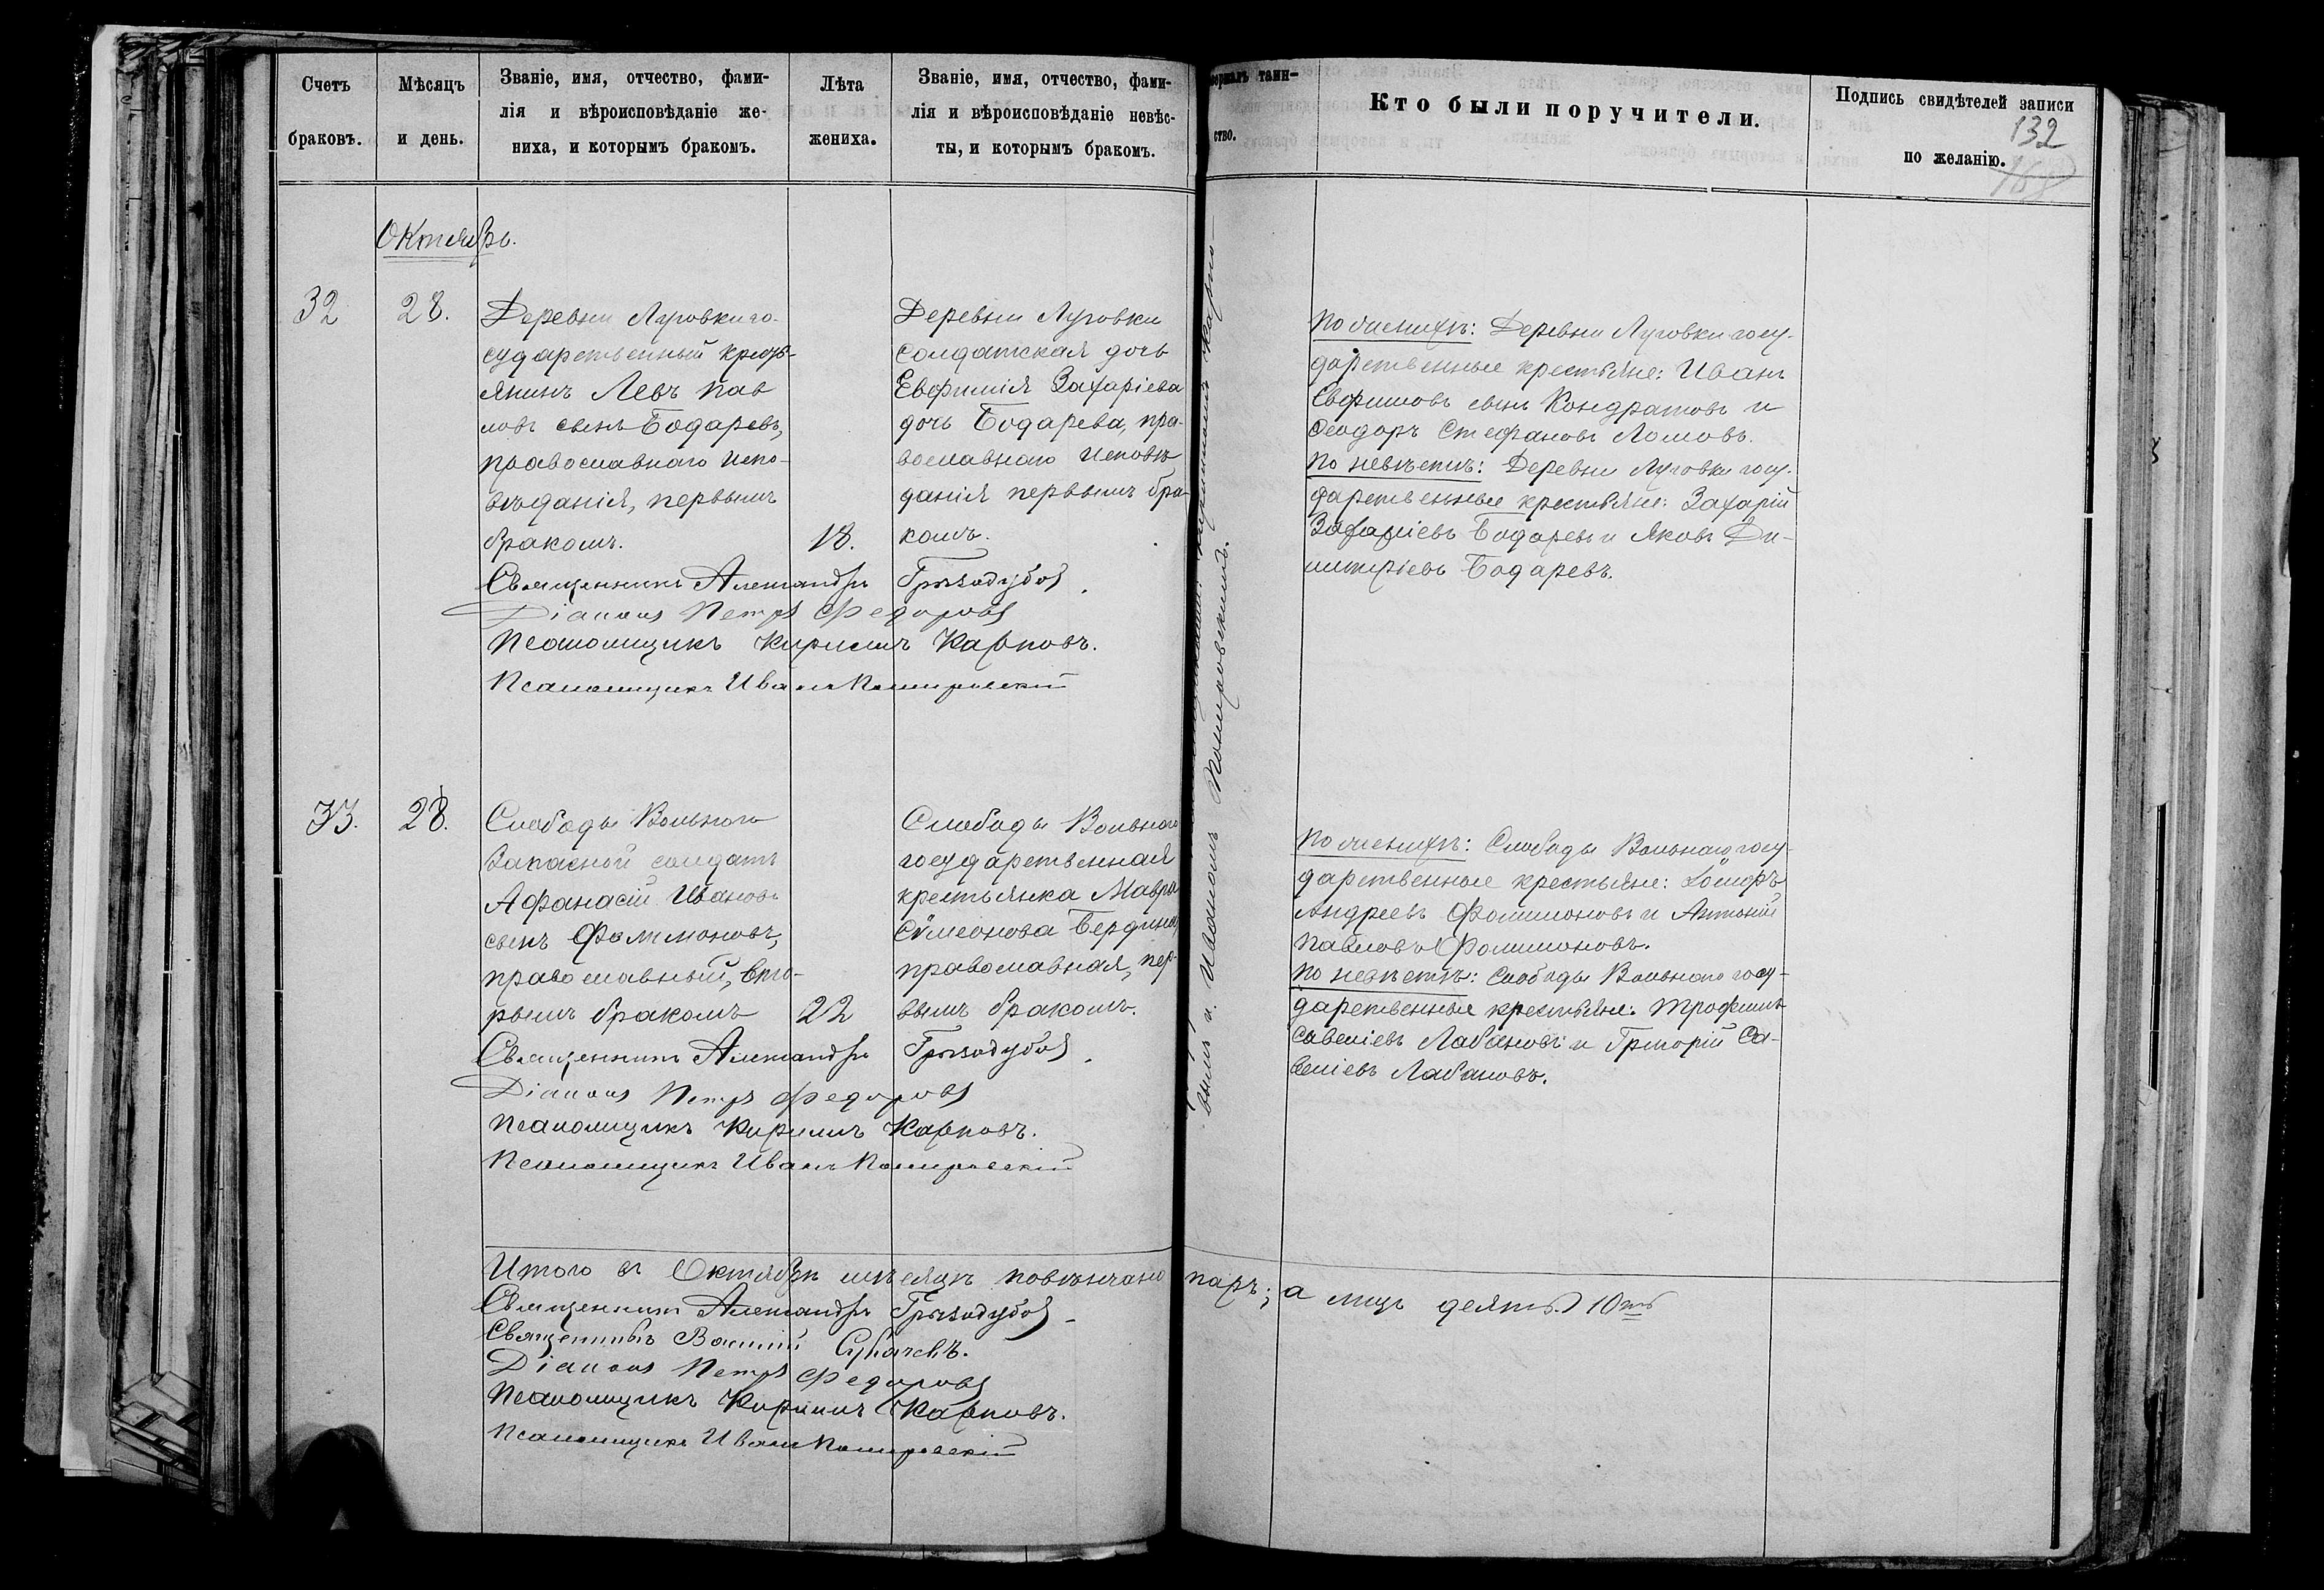 Счетъ
браковъ.
Мѣсяцъ
и день.
Званіе, имя, отчество, фами-
лія и вѣроисповѣданіе же-
ниха, и которымъ бракомъ.
Лѣта
жениха.
Званіе, имя, отчество, фами-
лія и вѣроисповѣданіе невѣс-
ты, и которымъ бракомъ.
таин-
ство.
Кто были поручители.
Подпись свидѣтелей записи
по желанію.
132
168
Октябрь.
32
28.
Деревни Луговки го-
сударственный кресть-
янинъ Левъ Пав
ловъ сынъ Бодаревъ,
православнаго испо-
вѣданія, первымъ
бракомъ.
18.
Деревни Луговки
солдатская дочь
Евфимія Захаріева
дочь Бодарева, пра-
вославнаго исповѣ
данія первымъ бра-
комъ.
Священникъ Александръ
Діаконъ Петръ Федоровъ
Псаломщикъ Кириллъ Карповъ.
Псаломщикъ Иванъ
По женихѣ: Деревни Луговки госу-
дарственные крестьяне: Иванъ
Евфимовъ сынъ Кондратовъ и
Ѳеодоръ Стефановъ Ломовъ.
По невѣстѣ: Деревни Луговки госу-
дарственные крестьяне: Захарій
Захаріевъ Бодаревъ и Яковъ Ди-
митріевъ Бодаревъ.
33.
28.
Слободы Вольнаго
запасной солдатъ
Афанасій Ивановъ
сынъ Филимоновъ,
православный, вто-
рымъ бракомъ
22
Слободы Вольнаго
государственная
крестьянка Мавра
Сѵмеонова Бердина
православная, пер-
вымъ бракомъ.
Священникъ Александръ
Діаконъ Петръ Федоровъ
Псаломщикъ Кириллъ Карповъ.
Псаломщикъ Иванъ
По женихѣ: Слободы Вольнаго госу-
дарственные крестьяне:
Андреевъ Филимоновъ и Антоній
Павловъ Филимоновъ.
По невѣстѣ: Слободы Вольнаго госу-
дарственные крестьяне: Трофимъ
Савеліевъ Лабановъ и Григорій Са-
веліевъ Лабановъ.
Итого въ Октябрѣ мѣсяцѣ повѣнчано паръ; а лицъ десять 10ть
Священникъ Александръ
Священникъ Василій
Діаконъ Петръ Федоровъ
Псаломщикъ Кириллъ Карповъ.
Псаломщикъ Иванъ